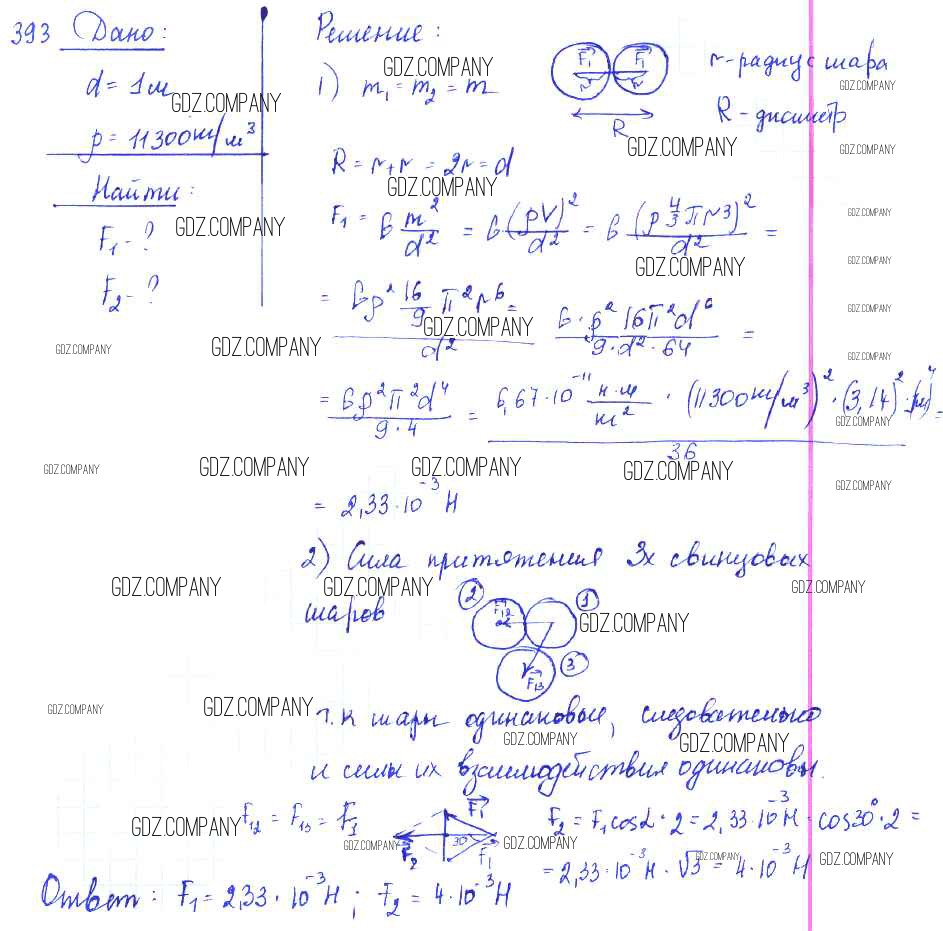 393 Дано:
d = 1м
ρ = 11300 кг/м³
Найти:
F₁ - ?
F₂ - ?
Решение:
1) m₁ = m₂ = m
F⃗₁ F⃗₁
r r
R
r - радиус шара
R - диаметр
R = r + r = 2r = d
F₁ = G m²/d² = G (ρV)²/d² = G (ρ 4/3 π r³)²/d² =
= Gρ² 16/9 π² r⁶ / d² = G·ρ² 16π²d⁶ / 9·d²·64 =
= Gρ²π²d⁴ / 9·4 = 6,67·10⁻¹¹ н·м/кг² · (11300кг/м³)² · (3,14)² · (1м)⁴ / 36 =
= 2,33·10⁻³ Н
2) Сила притяжения 3х свинцовых
шаров
2 F⃗₁₂ 1
3 F⃗₁₃
т.к шары одинаковые, следовательно
и силы их взаимодействия одинаковы.
F₁₂ = F₁₃ = F₃
F⃗₁
F⃗₂ 30° F⃗₁
F₂ = F₁cosα·2 = 2,33·10⁻³Н·cos30°·2 =
= 2,33·10⁻³Н·√3 = 4·10⁻³ Н
Ответ: F₁ = 2,33·10⁻³Н; F₂ = 4·10⁻³Н
GDZ.COMPANY